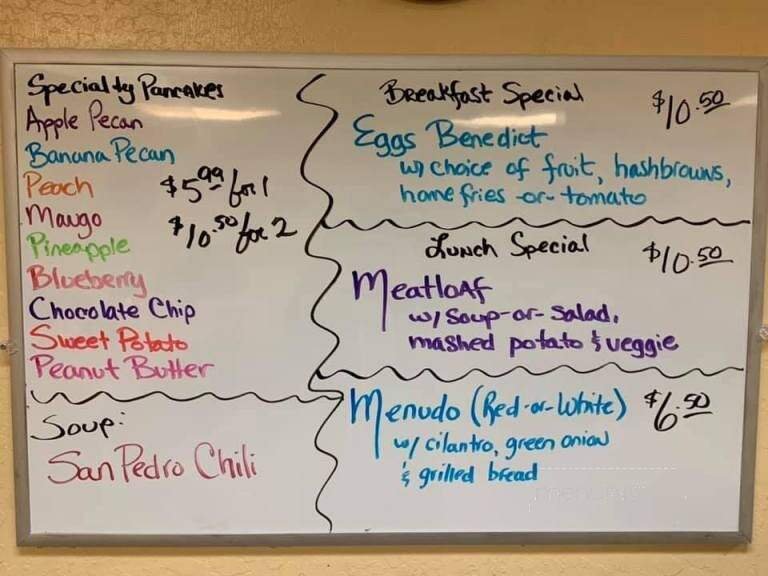 Specialty Pancakes
Apple Pecan
Banana Pecan
Peach
$5.99 for 1
Mango
$10.50 for 2
Pineapple
Blueberry
Chocolate Chip
Sweet Potato
Peanut Butter
Soup:
San Pedro Chili
Breakfast Special
$10.50
Eggs Benedict
w/ choice of fruit, hashbrowns,
home fries -or- tomato
Lunch Special
$10.50
Meatloaf
w/ soup-or-salad,
mashed potato & veggie
Menudo (Red-or-White) $6.50
w/ cilantro, green onion
& grilled bread